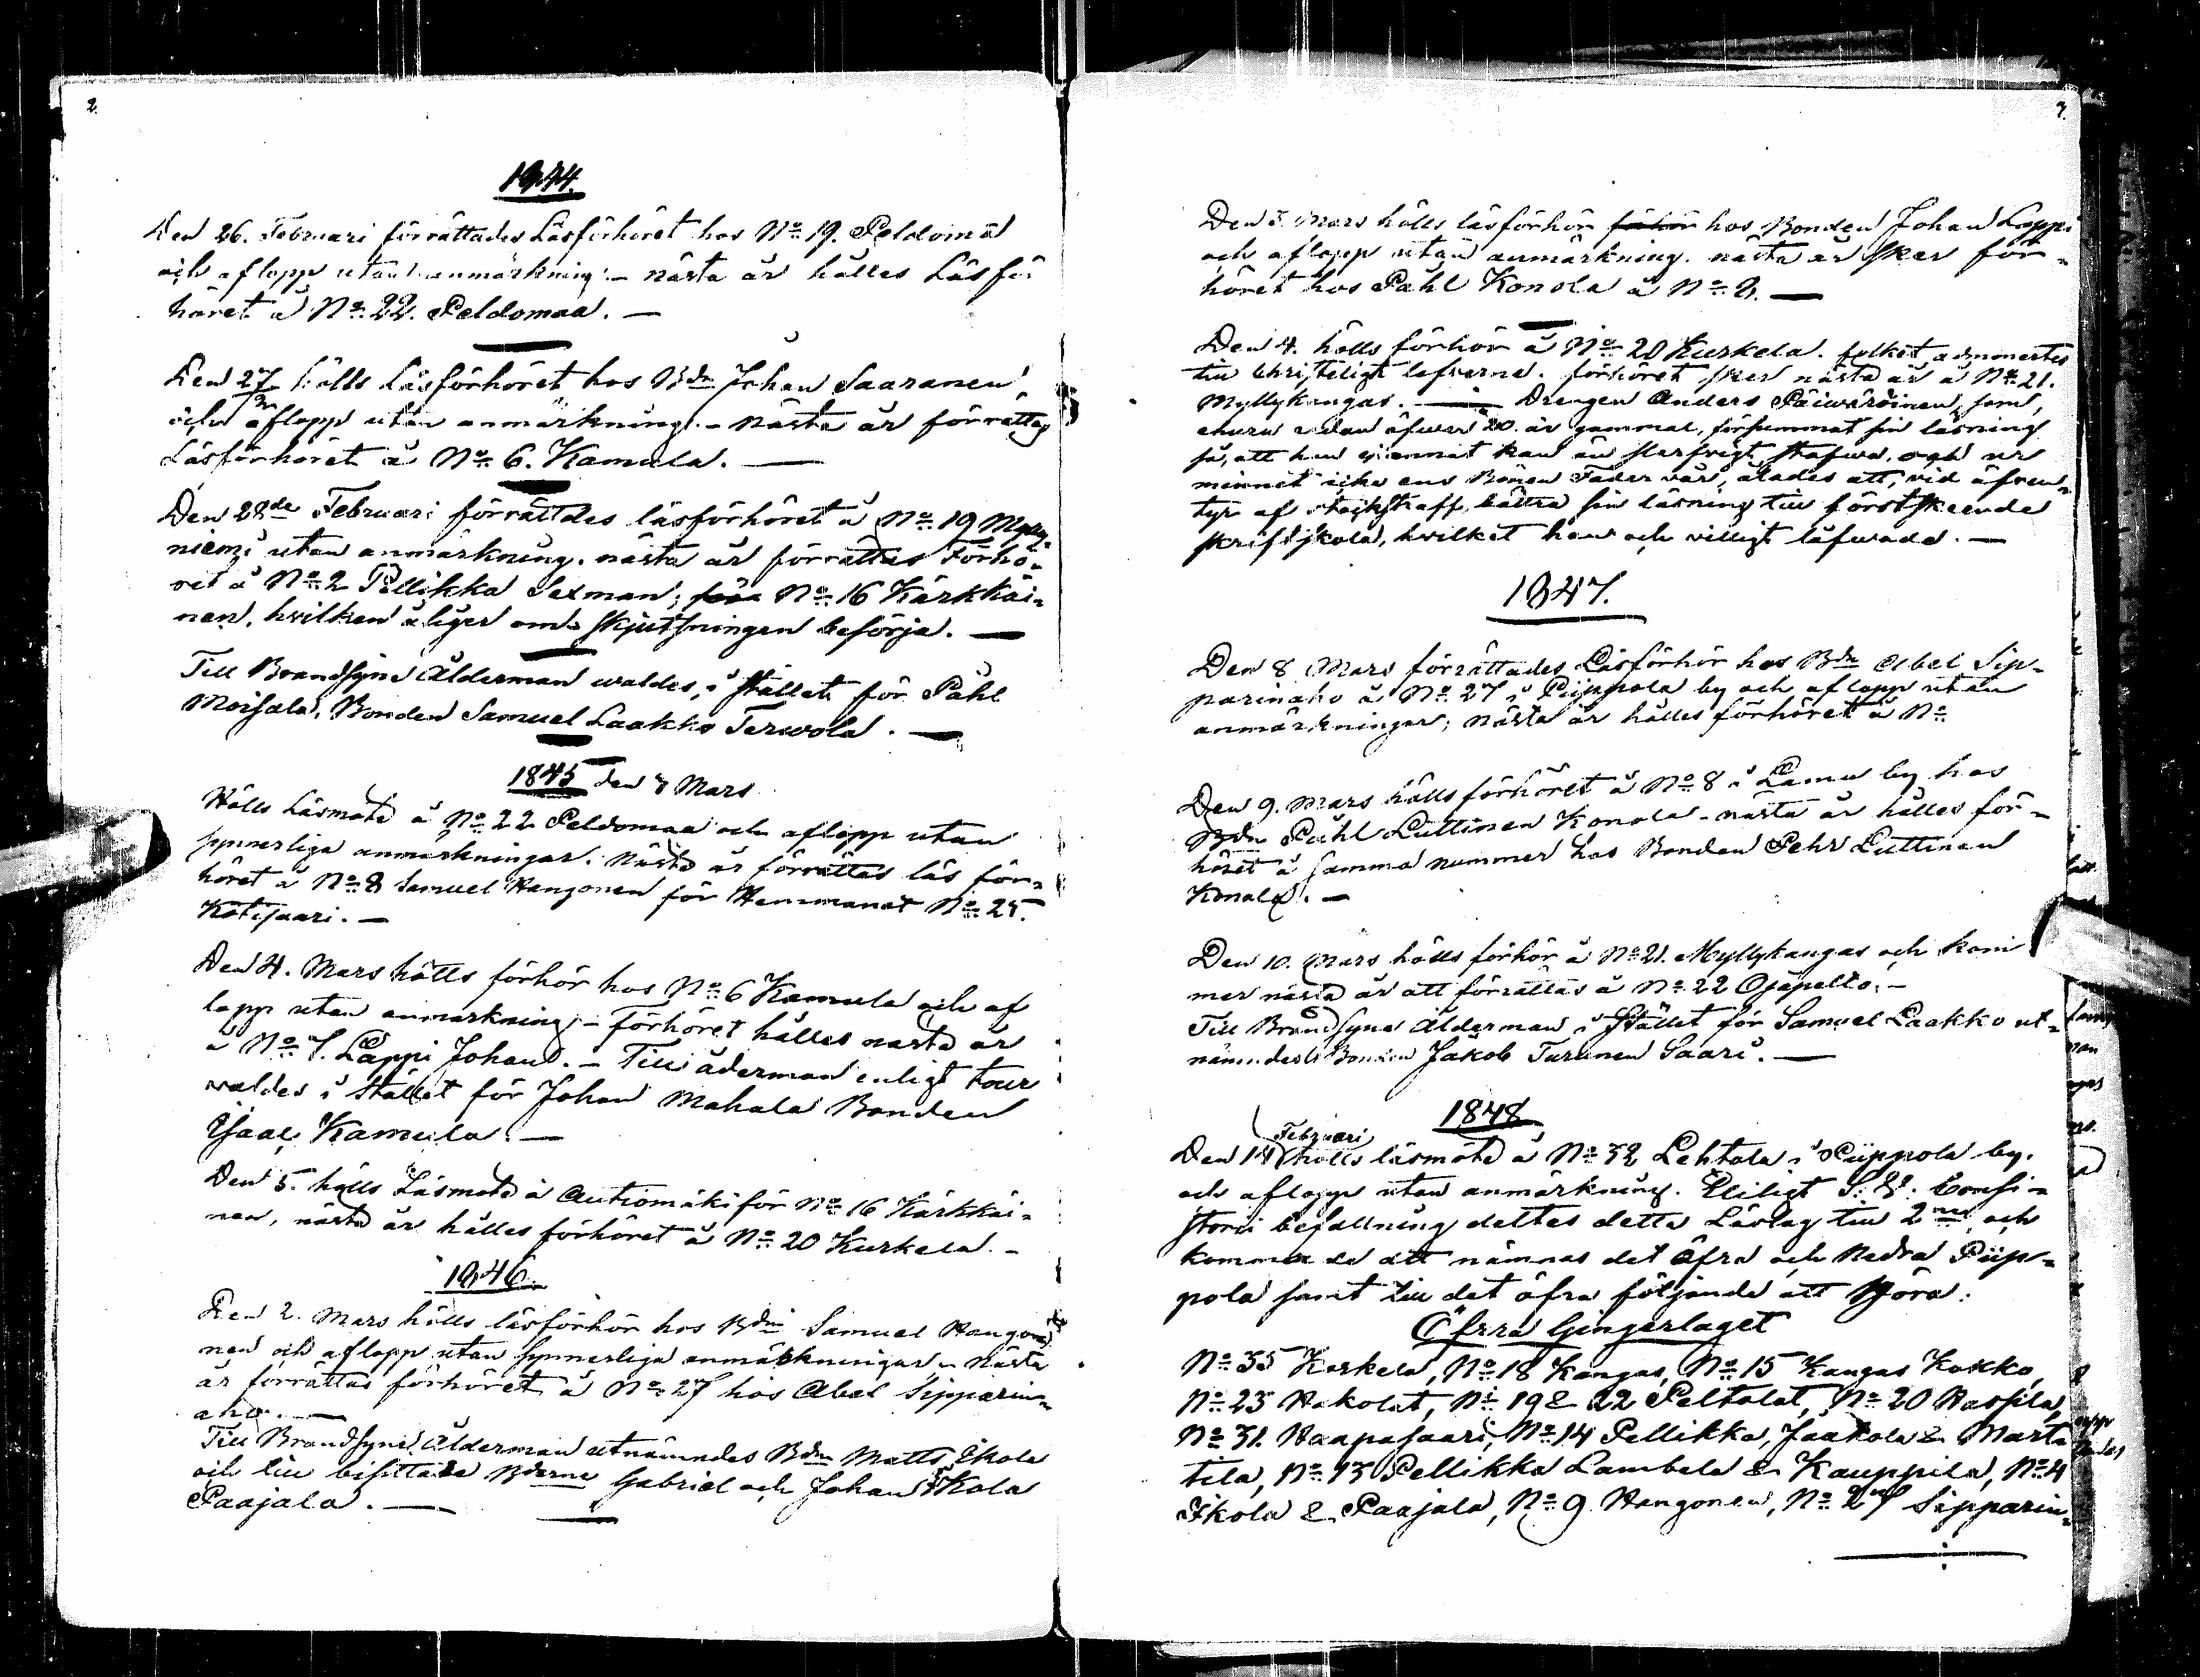 2.
1844.
Den 26. Februari förrättades Läsförhöret hos No 19. Peldoma
och aflopp utan anmärkning. – nästa år hålles Läsför
höret å No 22. Peldomaa. —
Den 27 hölls Läsförhöret hos Bdn Johan Saaranen,
och aflopp utan anmärkning. – Nästa år förrättas
Läsförhöret å No 6. Kamula. —
Den 28de Februari förrättdes läsförhöret å No 19 Mylly-
niemi utan anmärkning. nästa år förrättas Förhö-
ret å No 2 Pellikka Sexman; för No 16 Kärkkäi-
nen, hvilken åliger om skjutsningen besörja. —
Till Brandsyns Ålderman waldes, i stället för Påhl
Moisala, Bonden Samuel Laakko Terwola. —
1845 den 3 Mars
Hölls Läsmöte å No 22 Peldomaa och aflopp utan
synnerliga anmärkningar. Nästa år förrättas läs för-
höret å No 8 Samuel Hangonen för Hemmanet No 25.
Kotisaari. —
Den 4. Mars hölls förhör hos No 6 Kamula och af
lopp utan anmärkning – Förhöret hålles nästa år
å No 7. Lappi Johan. – Till åderman enligt tour
waldes i stället för Johan Mahala Bonden
Isaac Kamula. —
Den 5. hölls Läsmöte å Autiomäki för No 16 Kärkkäi-
nen, nästa år hålles förhöret å No 20 Kurkela. –
1846.
Den 2. Mars hölls läsförhör hos Bdn Samuel Hango
nen och aflopp utan synnerliga anmärkningar – Nästa
år förrättas förhöret å No 27 hos Abel Sipparin-
aho. —
Till Brandsyns Ålderman utnämndes Bdn Matts Ikola
och till bisittare Bderne Gabriel och Johan Ikola
Paajala. —
3.
Den 3. Mars hölls läsförhör förhör hos Bonden Johan Lappi
och aflopp utan anmärkning. nästa år sker för-
höret hos Påhl Konola å No 8. —
Den 4. hölls förhör å No 20 Kurkela. folket admonertes
till Christeligt lefverne. förhöret sker nästa år å No 21.
Myllykangas. — Drengen Anders Päiwäröinen, som,
ehuru redan öfwer 20. år gammal, försummat sin läsning
så, att han ej annat kan än slarfvigt stafwa, och ur
minnet icke ens Bönen Fader vår, ålades att, vid äfwen-
tyr af stockstraff, bättra sin läsning till förstskeende
skriftskola, hvilket han och villigt låfwade. —
1847.
Den 8 Mars förrättades Läsförhör hos Bdn Abel Sip-
parinaho å No 27 i Piippola by och aflopp utan
anmärkningar; nästa år hålles förhöret å No
Den 9. Mars hölls förhöret å No 8 i Lamu by hos
Bdn Påhl Luttinen Konola – nästa år hålles för-
höret å samma nummer hos Bonden Pehr Luttinen
Konola. —
Den 10. Mars hölls förhör å No 21. Myllykangas och kom
mer nästa år att förrättas å No 22 Ojapelto. –
Till Brandsyns Ålderman i stället för Samuel Laakko ut-
nämndes Bonden Jakob Turunen Saari. —
1848
Februari
Den 14 hölls läsmöte å No 32 Lehtola i Piippola by.
och aflopp utan anmärkning. Enligt Consi-
storii befallning deltes detta Läslag till 2ne och
komma de att nämnas det Öfra och Nedra Piip-
pola samt till det öfra följande att höra:
Öfrra Gingerlaget
No 35 Korkela, No 18 Kangas, No 15 Kangas Kokko,
No 23 Hakolat, No 19 & 22 Peltolat, No 20 Haspila,
No 31. Haapasaari, No 14 Pellikka, Jaakola & Martti
tila, No 13 Pellikka Lambela & Kauppila, No 4
Ikola & Paajala, No 9. Hangonen, No 27 Sipparin-